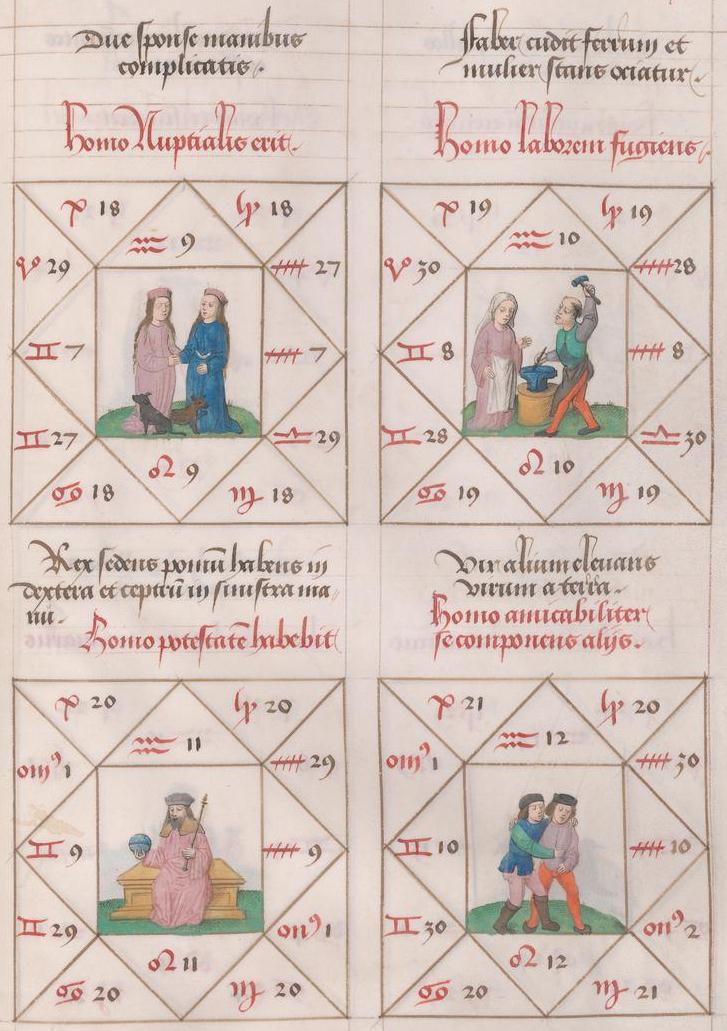 Due sponse manibus
complicatis.
Homo Nuptialis erit.
♓ 18
♑ 18
♒ 9
♈ 29
27
♊ 7
7
♊ 27
♎ 29
♌ 9
♋ 18
♍ 18
Faber cudit ferrum et
mulier stans ociatur.
Homo laborem fugiens.
♓ 19
♑ 19
♒ 10
♈ 30
28
♊ 8
8
♊ 28
♎ 30
♌ 10
♋ 19
♍ 19
Rex sedens pomū habens in
dextera et ceptrū in sinistra ma
nu.
Homo potestatē habebit
♓ 20
♑ 20
♒ 11
1
29
♊ 9
9
♊ 29
1
♌ 11
♋ 20
♍ 20
Vir alium elevans
virum a terra.
Homo amicabiliter
se componens alijs.
♓ 21
♑ 20
♒ 12
1
30
♊ 10
10
♊ 30
2
♌ 12
♋ 20
♍ 21